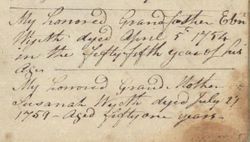 My honored Grandfather Eben
Wyeth dyed April 5th 1754
in the fifty fifth year of his
Age
My honored Grand Mother
Susanah Wyeth dyed July 27
1759 - Aged fifty one years